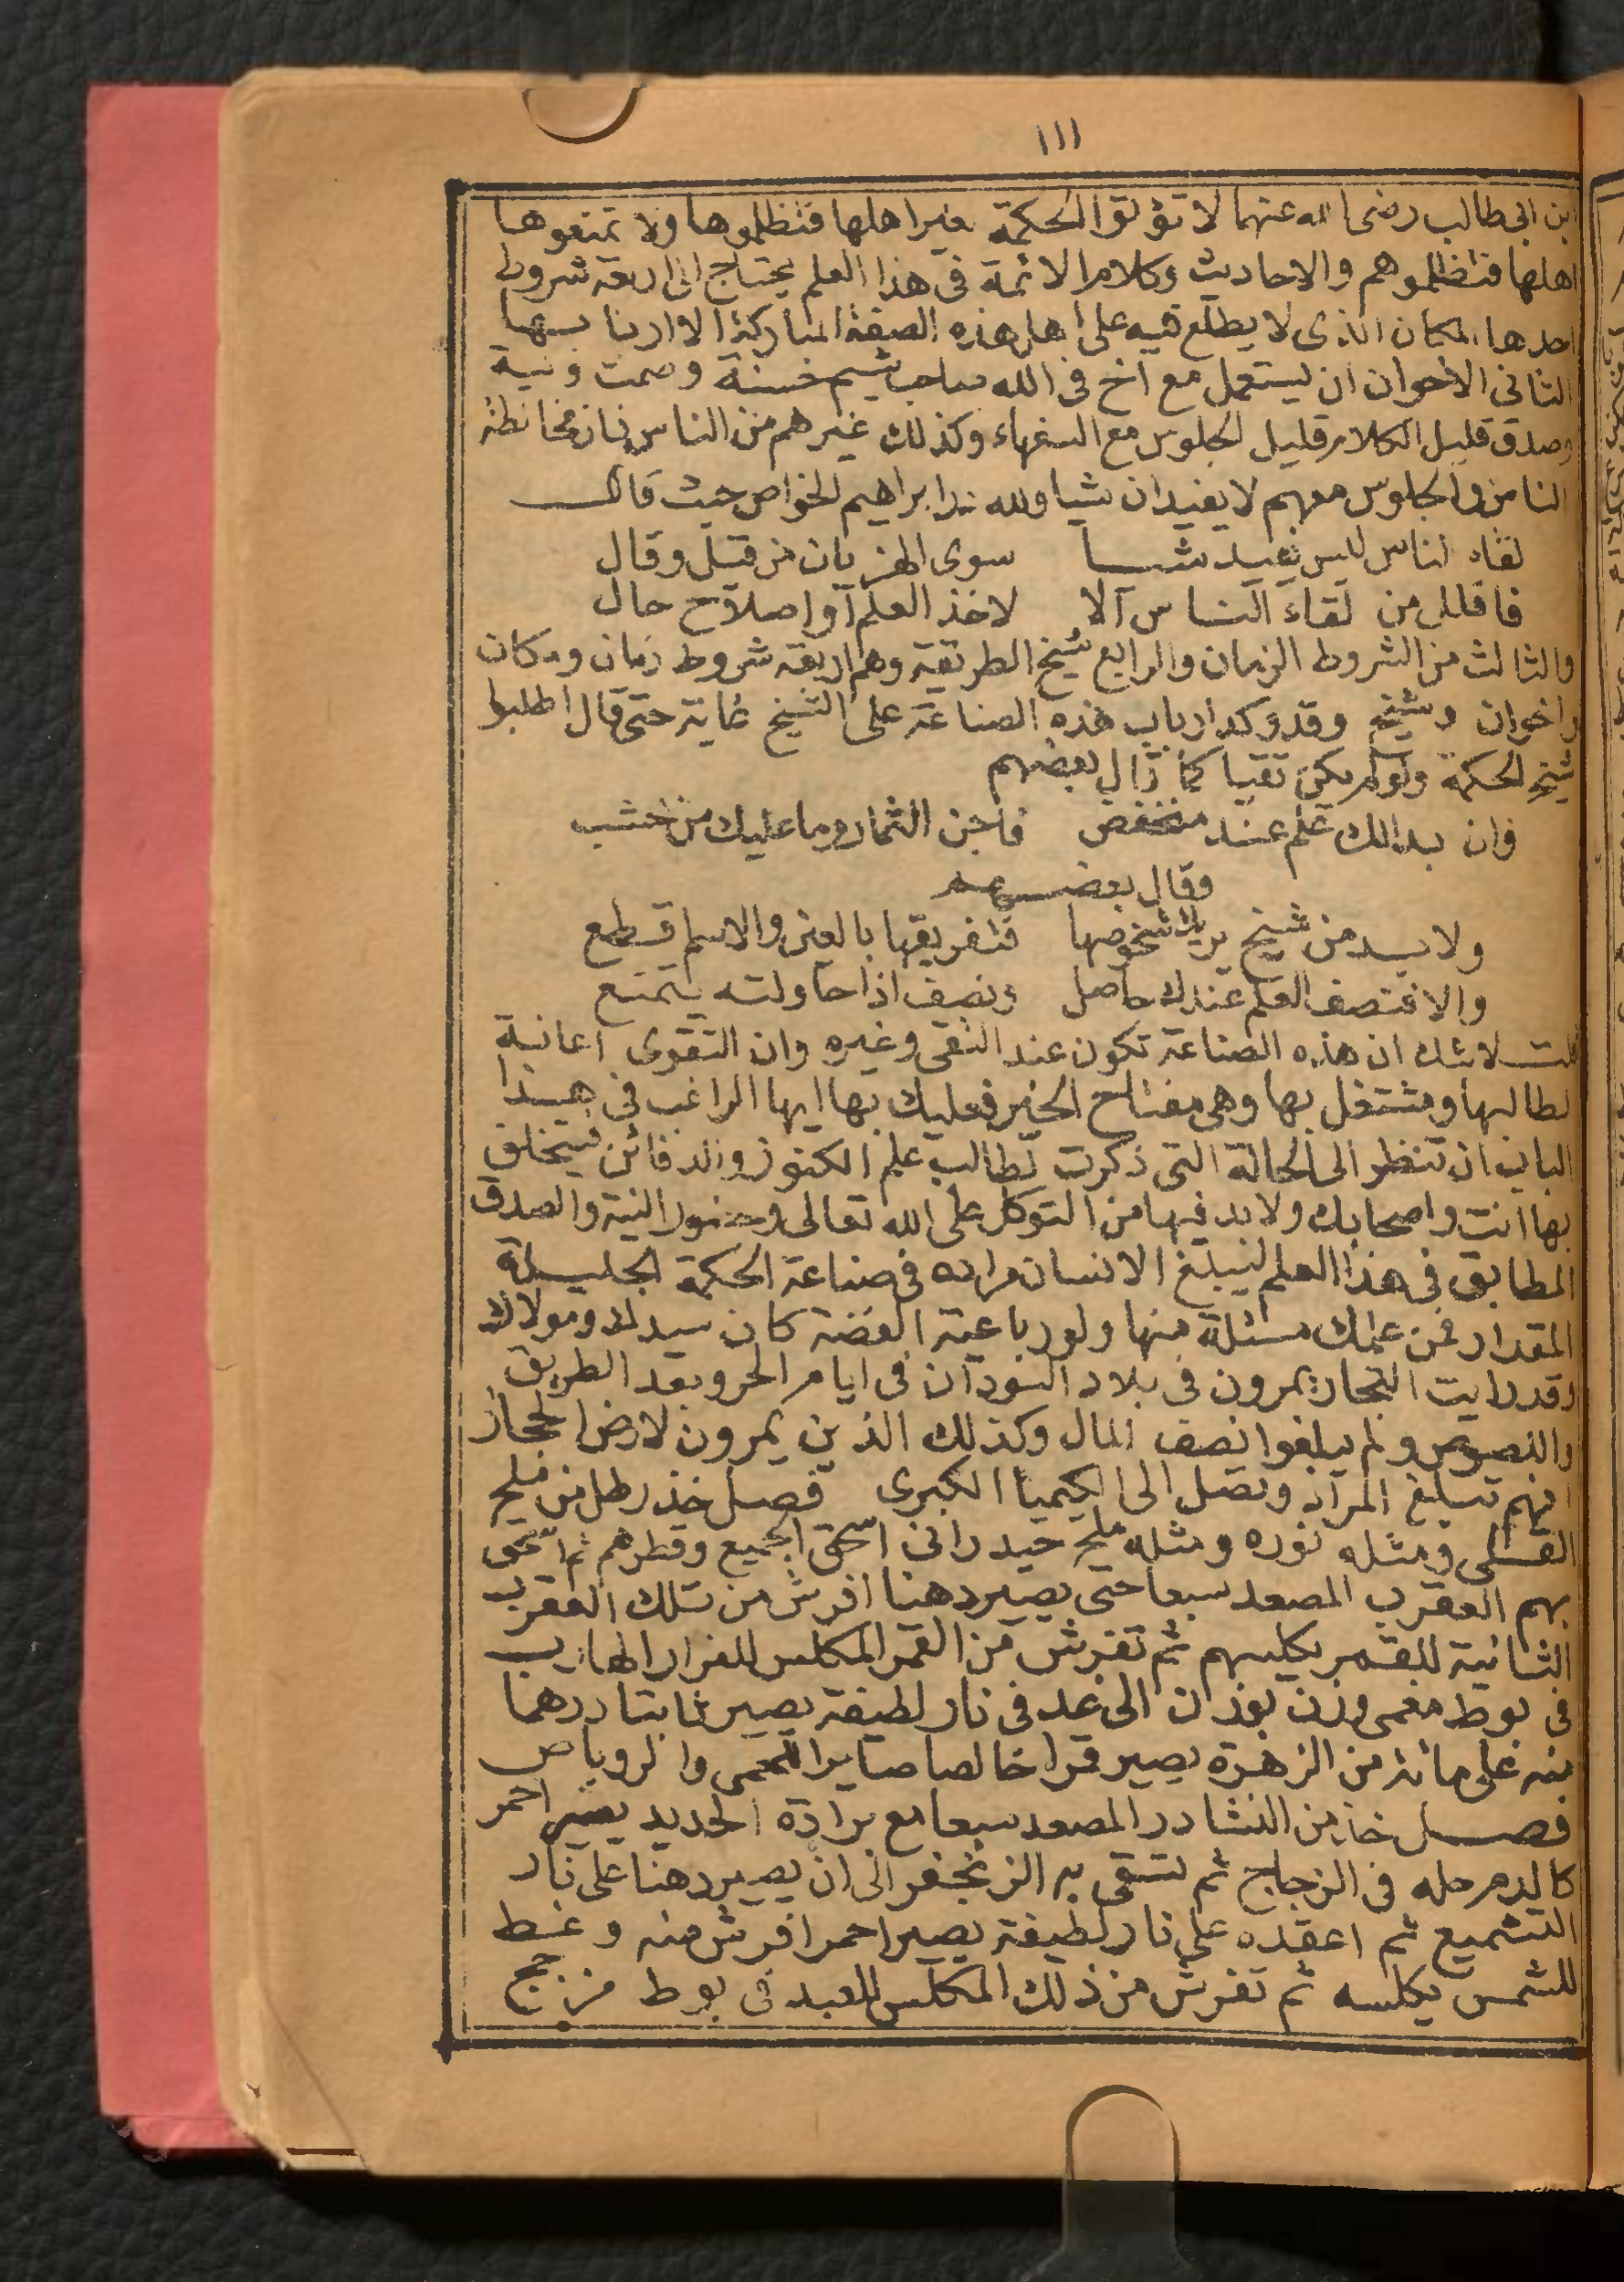 ١١١
ابن ابى طالب رضى الله عنهما لا تؤتوا الحكمة غير اهلها فتظلموها ولا تمنعوها
اهلها فتظلموهم والاحاديث وكلام الائمة فى هذا العلم يحتاج الى اربعة شروط
احدها المكان الذى لا يطلع فيه على اهل هذه الصفة المباركة الا اربابها
الثانى الاخوان ان يستعمل مع اخ فى الله صاحب شيم حسنة وصمت ونية
وصدق قليل الكلام قليل الجلوس مع السفهاء وكذلك غيرهم من الناس فان مخالطة
الناس والجلوس معهم لا يفيدان شيا ولله در ابراهيم الخواص حيث قال
لقاء الناس ليس يفيد شيا سوى الهزيان من قيل وقال
فاقلل من لقاء الناس الا لاخذ العلم او اصلاح حال
والثالث من الشروط الزمان والرابع شيخ الطريقة وهم اربعة شروط زمان ومكان
واخوان وشيخ وقد وكد ارباب هذه الصناعة على الشيخ غاية حتى قال اطلبوا
شيخ الحكمة ولو لم يكن تقيا كما قال بعضهم
وان بدا لك علم عند منخفض فاجن الثمار وما عليك من خشب
وقال بعضهم
ولا بد من شيخ يريك شخوصها فتفريقها بالعين والاسم قطع
والا فنصف العلم عندك حاصل ونصف اذا حاولته يتمنع
قلت لا شك ان هذه الصناعة تكون عند التقى وغيره وان التقوى اعانية
لطالبها ومشتغل بها وهى مفتاح الخير فعليك بها ايها الراغب فى هذا
الباب ان تنظر الى الحالة التى ذكرت لطالب علم الكنوز والدفائن فيتخلق
بها انت واصحابك ولا بد فيها من التوكل على الله تعالى وحضور النية والصدق
المطابق فى هذا العلم ليبلغ الانسان مراده فى صناعة الحكمة الجليلة
المقدار فمن علمك مسئلة منها ولو رباعية الفضة كان سيدك ومولاك
وقد رايت التجار يمرون فى بلاد السودان فى ايام الحر وبعد الطريق
واللصوص ولم يبلغوا نصف المال وكذلك الذين يمرون لارض الحجاز
افهم تبلغ المراد وتصل الى الكيميا الكبرى فصل خذ رطل من ملح
القلى ومثله نوره ومثله ملح حيدرانى اسحق الجميع وقطرهم ثم اسحق
بهم العقرب المصعد سبعا حتى يصير دهنا افرش من تلك العقرب
الثانية للقمر يكلسهم ثم تفرش من القمر المكلس للفرار الهارب
فى بوط معمى وزن بوزن الى غد فى نار لطيفة يصير ثابتا درهما
منه على مائة من الزهرة يصير قمرا خالصا صابرا للحمى والروباص
فصل خذ من النشادر المصعد سبعا مع برادة الحديد يصير احمر
كالدم حله فى الزجاج ثم تسقى به الزنجفر الى ان يصير دهنا على نار
التشميع ثم اعقده على نار لطيفة يصير احمر افرش منه وغط
للشمس يكلسه ثم تفرش من ذلك المكلس للعبد فى بوط مزجج